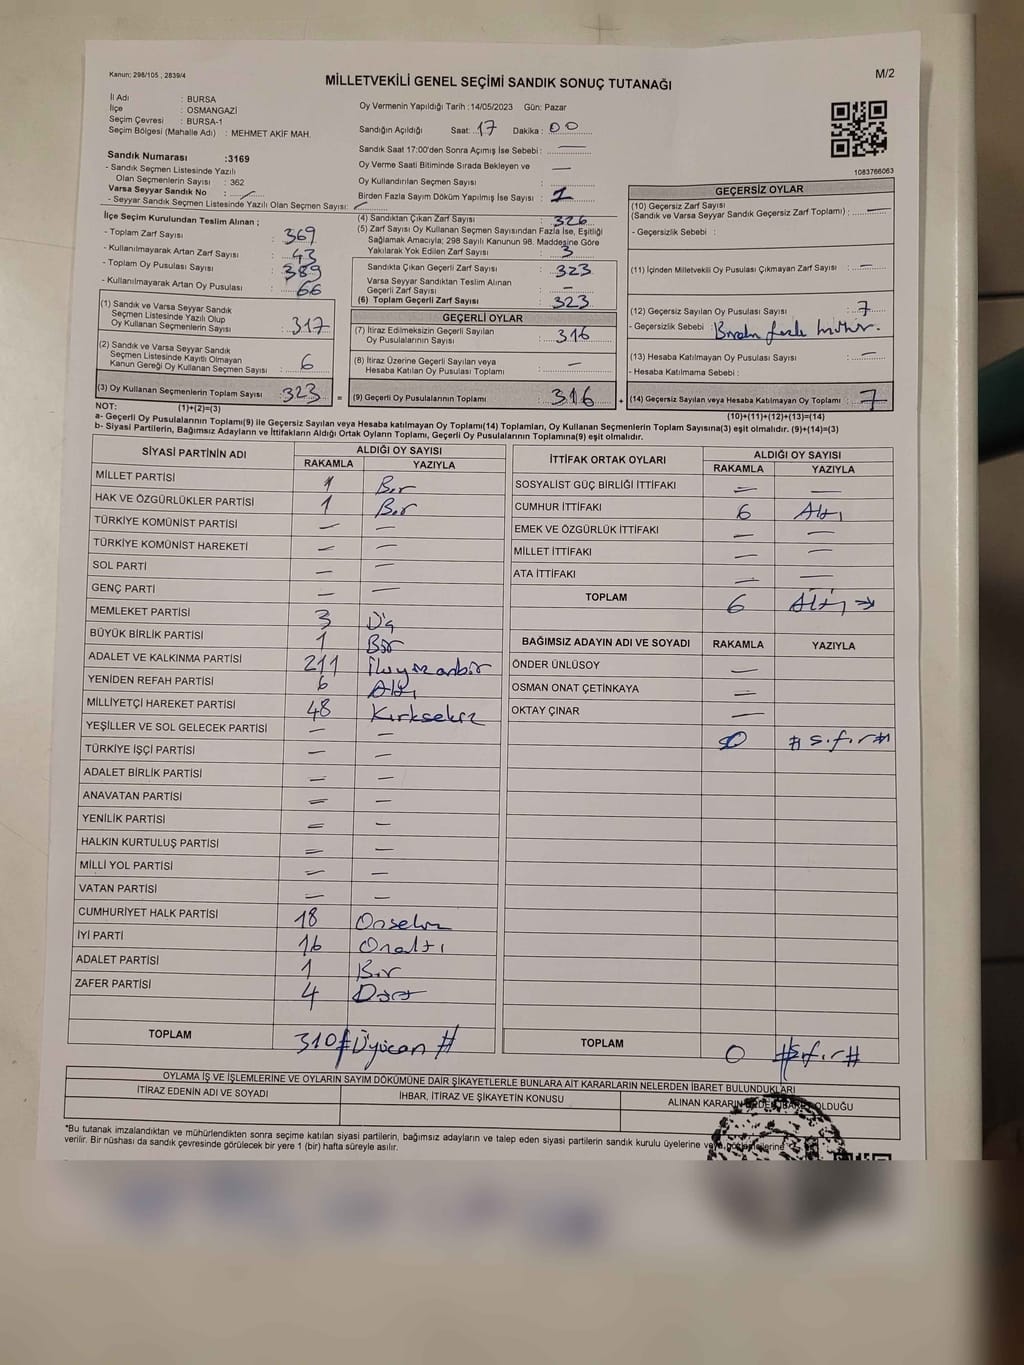 Kanun; 298/105 , 2839/4
MİLLETVEKİLİ GENEL SEÇİMİ SANDIK SONUÇ TUTANAĞI
M/2
İl Adı : BURSA
İlçe : OSMANGAZİ
Seçim Çevresi : BURSA-1
Seçim Bölgesi (Mahalle Adı) : MEHMET AKİF MAH.
Oy Vermenin Yapıldığı Tarih :14/05/2023 Gün: Pazar
Sandığın Açıldığı Saat: 17 Dakika : 00
Sandık Saat 17:00'den Sonra Açılmış İse Sebebi : —
Oy Verme Saati Bitiminde Sırada Bekleyen ve —
Oy Kullandırılan Seçmen Sayısı :
Birden Fazla Sayım Döküm Yapılmış İse Sayısı : 1
1083766063
Sandık Numarası :3169
- Sandık Seçmen Listesinde Yazılı
Olan Seçmenlerin Sayısı : 362
Varsa Seyyar Sandık No :
- Seyyar Sandık Seçmen Listesinde Yazılı Olan Seçmen Sayısı:
İlçe Seçim Kurulundan Teslim Alınan ;
- Toplam Zarf Sayısı : 369
- Kullanılmayarak Artan Zarf Sayısı : 43
- Toplam Oy Pusulası Sayısı : 389
- Kullanılmayarak Artan Oy Pusulası : 66
(1) Sandık ve Varsa Seyyar Sandık
Seçmen Listesinde Yazılı Olup
Oy Kullanan Seçmenlerin Sayısı : 317
(2) Sandık ve Varsa Seyyar Sandık
Seçmen Listesinde Kayıtlı Olmayan
Kanun Gereği Oy Kullanan Seçmen Sayısı : 6
(3) Oy Kullanan Seçmenlerin Toplam Sayısı : 323
(4) Sandıktan Çıkan Zarf Sayısı : 326
(5) Zarf Sayısı Oy Kullanan Seçmen Sayısından Fazla İse, Eşitliği
Sağlamak Amacıyla; 298 Sayılı Kanunun 98. Maddesine Göre
Yakılarak Yok Edilen Zarf Sayısı : 3
Sandıkta Çıkan Geçerli Zarf Sayısı : 323
Varsa Seyyar Sandıktan Teslim Alınan
Geçerli Zarf Sayısı : —
(6) Toplam Geçerli Zarf Sayısı : 323
GEÇERLİ OYLAR
(7) İtiraz Edilmeksizin Geçerli Sayılan
Oy Pusulalarının Sayısı : 316
(8) İtiraz Üzerine Geçerli Sayılan veya
Hesaba Katılan Oy Pusulası Toplamı : —
= (9) Geçerli Oy Pusulalarının Toplamı : 316
GEÇERSİZ OYLAR
(10) Geçersiz Zarf Sayısı
(Sandık ve Varsa Seyyar Sandık Geçersiz Zarf Toplamı) : —
- Geçersizlik Sebebi :
(11) İçinden Milletvekil Oy Pusulası Çıkmayan Zarf Sayısı : —
(12) Geçersiz Sayılan Oy Pusulası Sayısı : 7
- Geçersizlik Sebebi : Birden fazla mühür.
(13) Hesaba Katılmayan Oy Pusulası Sayısı : —
- Hesaba Katılmama Sebebi :
+ (14) Geçersiz Sayılan veya Hesaba Katılmayan Oy Toplamı : 7
NOT: (1)+(2)=(3)
(10)+(11)+(12)+(13)=(14)
a- Geçerli Oy Pusulalarının Toplamı(9) ile Geçersiz Sayılan veya Hesaba katılmayan Oy Toplamı(14) Toplamları, Oy Kullanan Seçmenlerin Toplam Sayısına(3) eşit olmalıdır. (9)+(14)=(3)
b- Siyasi Partilerin, Bağımsız Adayların ve İttifakların Aldığı Ortak Oyların Toplamı, Geçerli Oy Pusulalarının Toplamına(9) eşit olmalıdır.
SİYASİ PARTİNİN ADI ALDIĞI OY SAYISI
RAKAMLA YAZIYLA
MİLLET PARTİSİ 1 Bir
HAK VE ÖZGÜRLÜKLER PARTİSİ 1 Bir
TÜRKİYE KOMÜNİST PARTİSİ — —
TÜRKİYE KOMÜNİST HAREKETİ — —
SOL PARTİ — —
GENÇ PARTİ — —
MEMLEKET PARTİSİ 3 Üç
BÜYÜK BİRLİK PARTİSİ 1 Bir
ADALET VE KALKINMA PARTİSİ 211 İkiyüzonbir
YENİDEN REFAH PARTİSİ 6 Altı
MİLLİYETÇİ HAREKET PARTİSİ 48 Kırksekiz
YEŞİLLER VE SOL GELECEK PARTİSİ — —
TÜRKİYE İŞÇİ PARTİSİ — —
ADALET BİRLİK PARTİSİ — —
ANAVATAN PARTİSİ — —
YENİLİK PARTİSİ — —
HALKIN KURTULUŞ PARTİSİ — —
MİLLİ YOL PARTİSİ — —
VATAN PARTİSİ — —
CUMHURİYET HALK PARTİSİ 18 Onsekiz
İYİ PARTİ 16 Onaltı
ADALET PARTİSİ 1 Bir
ZAFER PARTİSİ 4 Dört
TOPLAM 310 # Üçyüzon #
İTTİFAK ORTAK OYLARI ALDIĞI OY SAYISI
RAKAMLA YAZIYLA
SOSYALİST GÜÇ BİRLİĞİ İTTİFAKI — —
CUMHUR İTTİFAKI 6 Altı
EMEK VE ÖZGÜRLÜK İTTİFAKI — —
MİLLET İTTİFAKI — —
ATA İTTİFAKI — —
TOPLAM 6 Altı
BAĞIMSIZ ADAYIN ADI VE SOYADI RAKAMLA YAZIYLA
ÖNDER ÜNLÜSOY —
OSMAN ONAT ÇETİNKAYA —
OKTAY ÇINAR —
0 # sıfır #
TOPLAM 0 # sıfır #
OYLAMA İŞ VE İŞLEMLERİNE VE OYLARIN SAYIM DÖKÜMÜNE DAİR ŞİKAYETLERLE BUNLARA AİT KARARLARIN NELERDEN İBARET BULUNDUKLARI
İTİRAZ EDENİN ADI VE SOYADI İHBAR, İTİRAZ VE ŞİKAYETİN KONUSU ALINAN KARARIN OLDUĞU
*Bu tutanak imzalandıktan ve mühürlendikten sonra seçime katılan siyasi partilerin, bağımsız adayların ve talep eden siyasi partilerin sandık kurulu üyelerine
verilir. Bir nüshası da sandık çevresinde görülecek bir yere 1 (bir) hafta süreyle asılır.